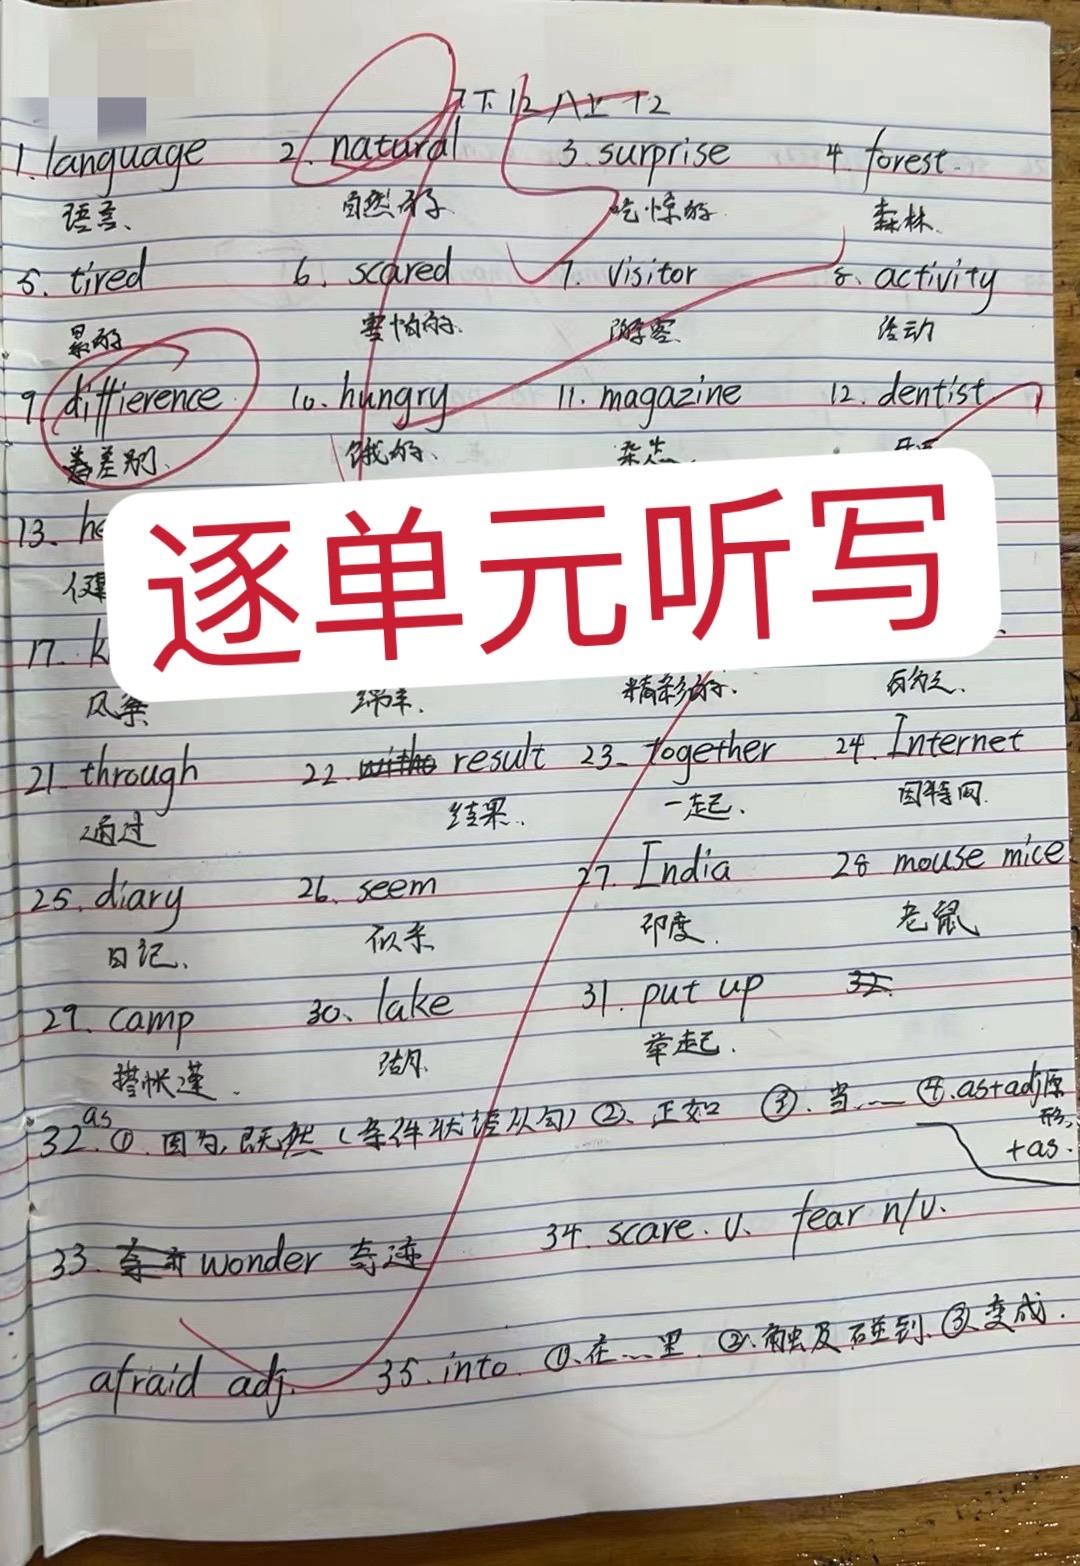 7下12 八上 12
1. language 2. natural 3. surprise 4. forest.
语言、 自然的 吃惊的 森林.
5. tired 6. scared 7. visitor 8. activity
累的 害怕的. 游客 活动
9. diffierence 10. hungry 11. magazine 12. dentist
差别. 饿的、 杂志.
逐单元听写
13. he
17. k
风筝 绵羊. 精彩的.
21. through 22. result 23. together 24. Internet
通过 结果. 一起. 因特网
25. diary 26. seem 27. India 28 mouse mice
日记、 似乎 印度. 老鼠
29. camp 30. lake 31. put up 32.
搭帐蓬. 湖. 举起.
32. as ①. 因为, 既然 (条件状语从句) ②. 正如 ③. 当…… ④. as+adj原形,
+as.
33. wonder 奇迹 34. scare. v. fear n/v.
afraid adj. 35. into. ①. 在……里. ②. 触及碰到. ③. 变成.